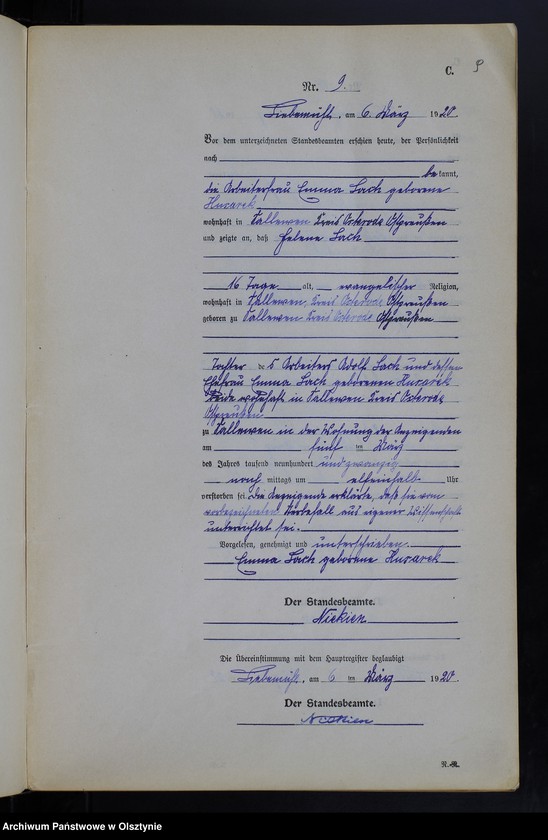 C. 9
Nr. 9.
Liebemühl, am 6. März 1920.
Vor dem unterzeichneten Standesbeamten erschien heute, der Persönlichkeit
nach
bekannt,
die Arbeiterfrau Emma Sach geborene
Husarek
wohnhaft in Tallewen Kreis Osterode Ostpreußen
und zeigte an, daß Helene Sach
16 Tage alt, evangelischer Religion,
wohnhaft in Tallewen Kreis Osterode Ostpreußen
geboren zu Tallewen Kreis Osterode Ostpreußen
Tochter des Arbeiters Adolf Sach und dessen
Ehefrau Emma Sach geborenen Husarek
beide wohnhaft in Tallewen Kreis Osterode
Ostpreußen
zu Tallewen in der Wohnung der Anzeigenden
am fünften März
des Jahres tausend neunhundert und zwanzig
nach mittags um elfeinhalb Uhr
verstorben sei. Die Anzeigende erklärte, daß sie vom
vorbezeichneten Sterbefall aus eigener Wissenschaft
unterrichtet sei.
Vorgelesen, genehmigt und unterschrieben.
Emma Sach geborene Husarek
Der Standesbeamte.
Niekien
Die Übereinstimmung mit dem Hauptregister beglaubigt
Liebemühl, am 6 ten März 1920.
Der Standesbeamte.
Niekien
R.-M.
Archiwum Państwowe w Olsztynie